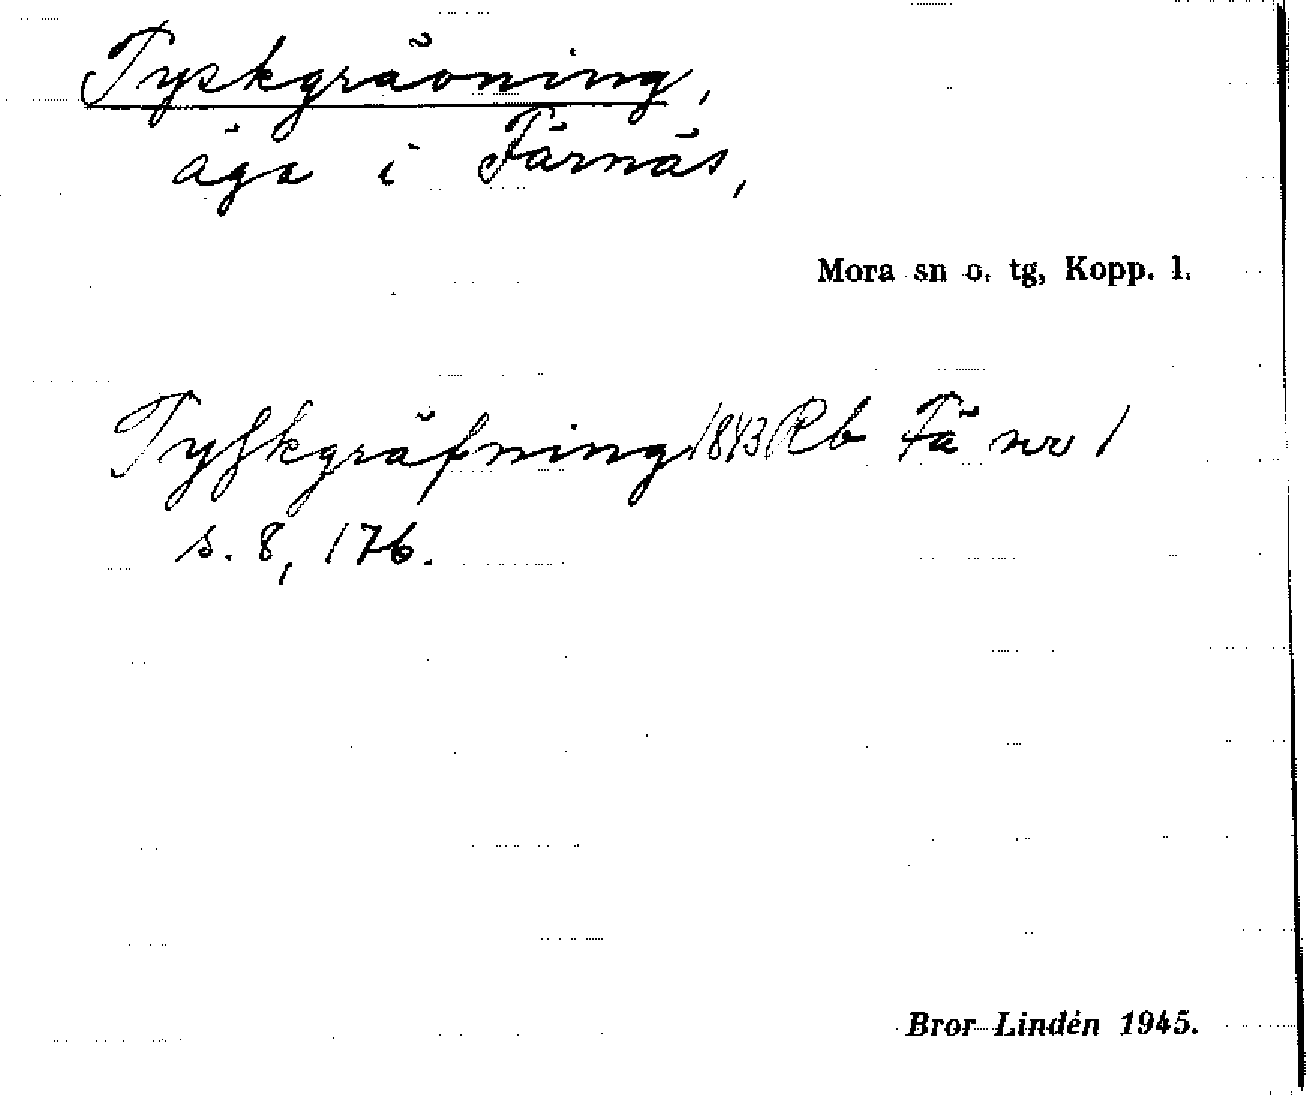 Tyskgrävning,
äga i Färnäs,
Mora sn o. tg, Kopp. l.
Tyſkgräfning 1843 Rb Fä nr 1
s. 8, 176.
Bror Lindén 1945.